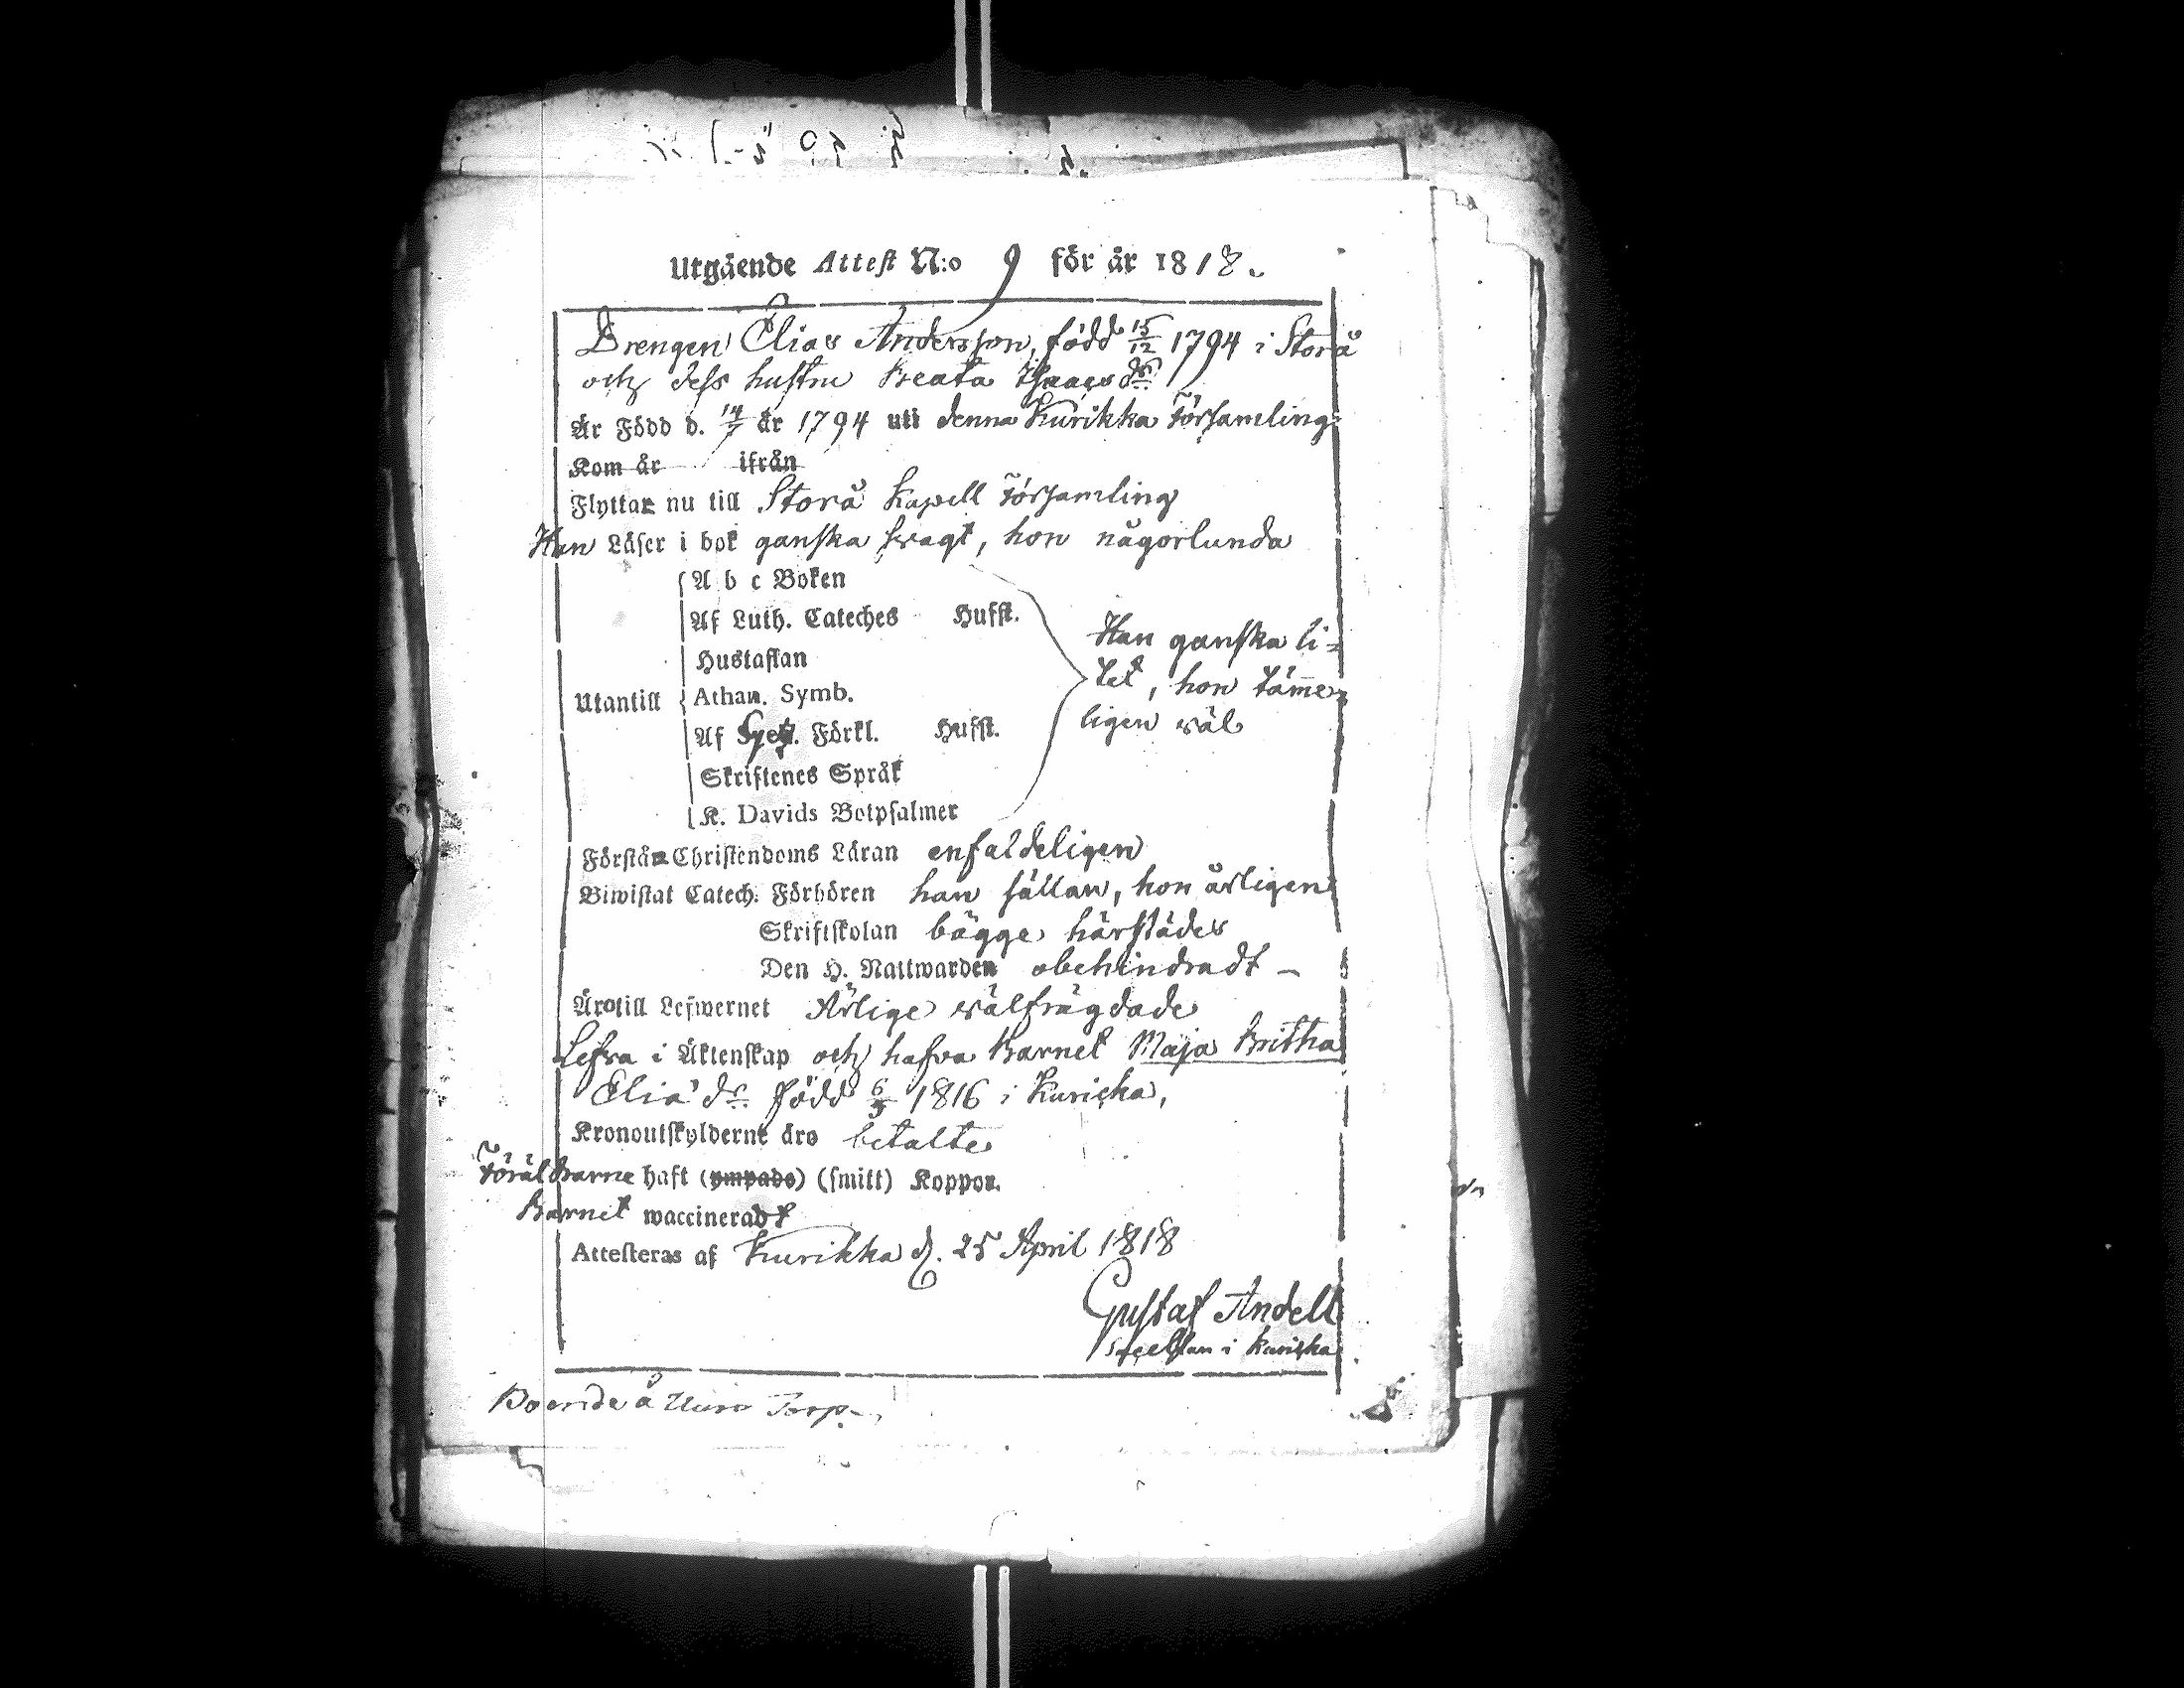 Utgående Attest N:o 9 för år 1818.
Drengen Elias Andersson, född 15/12 1794 i Storå
och dess hustru Beata Isaacs dr
Är Född d. 14/7 år 1794 uti denna Kurikka Församling
Kom år ifrån
Flyttar nu till Storå Kapell Församling
Han Läser i bok ganska svagt, hon någorlunda
A b c Boken
Af Luth. Cateches Hufst.
Hustaflan
Utantill Athan. Symb.
Af Förkl. Hufst.
Skriftenes Språk
K. Davids Botpsalmer
Han ganska li=
tet, hon täme=
ligen wäl
Förstå Christendoms Läran enfaldeligen
Biwistat Catech. Förhören han sällan, hon årligen
Skriftskolan bägge härstädes
Den H. Nattwarden obehindradt –
Äro till Lefwernet Ärlige wälfrägdade
Lefva i Äktenskap och hafva Barnet Maja Britha
Eliä dr. född 6/9 1816 i Kuricka,
Kronoutskylderne äro betalte
Föräldrarne haft (ympade) (smitt) Koppor.
Barnet waccineradt
Attesteras af Kurikka d. 25 April 1818
Gustaf Andell
Sacellan i Kuricka
Boende å Torp.